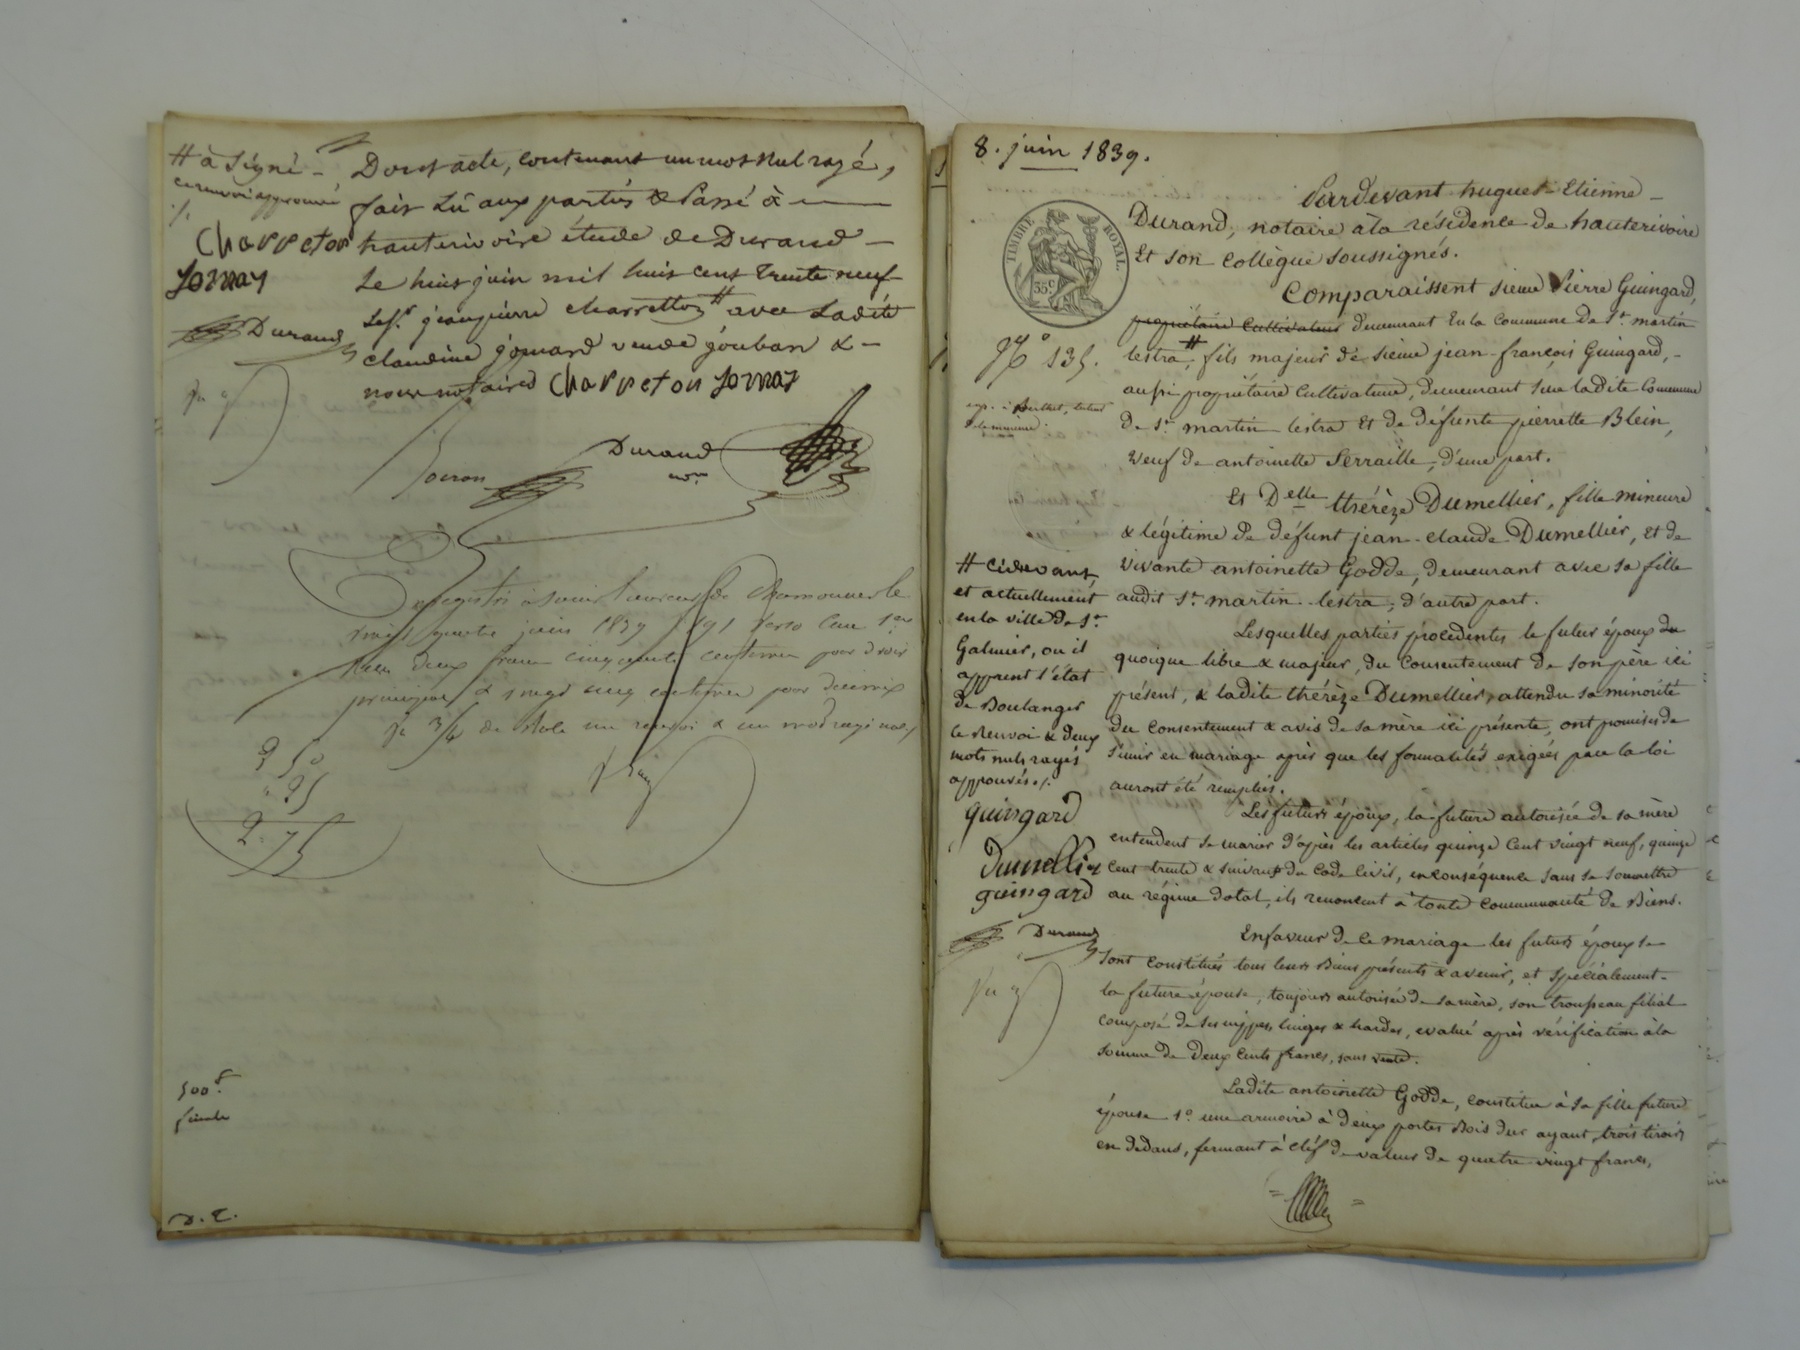 # à signé -
ce renvoi approuvé
./.
Charreton
Jomar
Durand
Dont acte, contenant un mot nul rayé,
fait Lû aux parties & Passé à
hauterivoire étude de Durand -
Le huit juin mil huit cent trente neuf
Led.t jean pierre charretton # avec Ladite
claudine jomard veuve jouban & -
nous notaires Charreton Jomar
Durand
no.re
Enregistré à Saint Laurent de Chamousset le
vingt quatre juin 1839 f. 91 verso Case 1ere
Reçu deux francs cinquante centimes pour droit
principal & vingt cinq centimes pour décime
3/4 de Rôle un renvoi & un mot rayé nul
2 50
" 25
2 75
500 f
D. E.
8. juin 1839.
TIMBRE ROYAL.
35 c
N.o 135.
Pardevant hugues Etienne -
Durand, notaire à la résidence de hauterivoire
Et son collègue soussignés.
Comparaissent sieur Pierre Guingard,
propriétaire Cultivateur demeurant En la Commune de S.t martin
lestra #, fils majeur de sieur jean-françois Guingard, -
aussi propriétaire Cultivateur, demeurant sur ladite Commune
de S.t martin lestra Et de défunte pierrette Blein,
veuf de antoinette Serraille, d'une part.
Et Delle thérèze Dumellier, fille mineure
& légitime de défunt jean-claude Dumellier, Et de
vivante antoinette Godde, demeurant avec sa fille
audit S.t martin-lestra, d'autre part.
Lesquelles parties procédentes le futur époux du
quoique libre & majeur, du Consentement de son père ici
présent, & ladite thérèze Dumellier, attendu sa minorité
du Consentement & avis de sa mère ici présente, ont promis de
s'unir en mariage après que les formalités exigées par la loi
auront été remplies.
Les futurs époux, la future autorisée de sa mère
entendent se marier d'après les articles quinze Cent vingt neuf, quinze
Cent trente & suivant du Code Civil, en Conséquence sans se soumettre
au régime dotal, ils renoncent à toute Communauté de Biens.
En faveur de ce mariage les futurs époux se
sont Constitués tous leurs Biens présents & avenir, et spécialement -
la future épouse, toujours autorisée de sa mère, son trousseau filial
composé de ses nippes, linges & hardes, évalué après vérification à la
somme de Deux Cents francs, sans vente.
Ladite antoinette Godde, constitue à sa fille future
épouse 1.o une armoire à deux portes Bois dur ayant trois tiroirs
en dedans, fermant à cléf de valeur de quatre vingt francs,
# ci devant,
et actuellement
en la ville de S.t
Galmier, où il
apprent l'état
de Boulanger
le renvoi & deux
mots nuls rayés
approuvés ./.
guingard
Dumellier
guingard
Durand